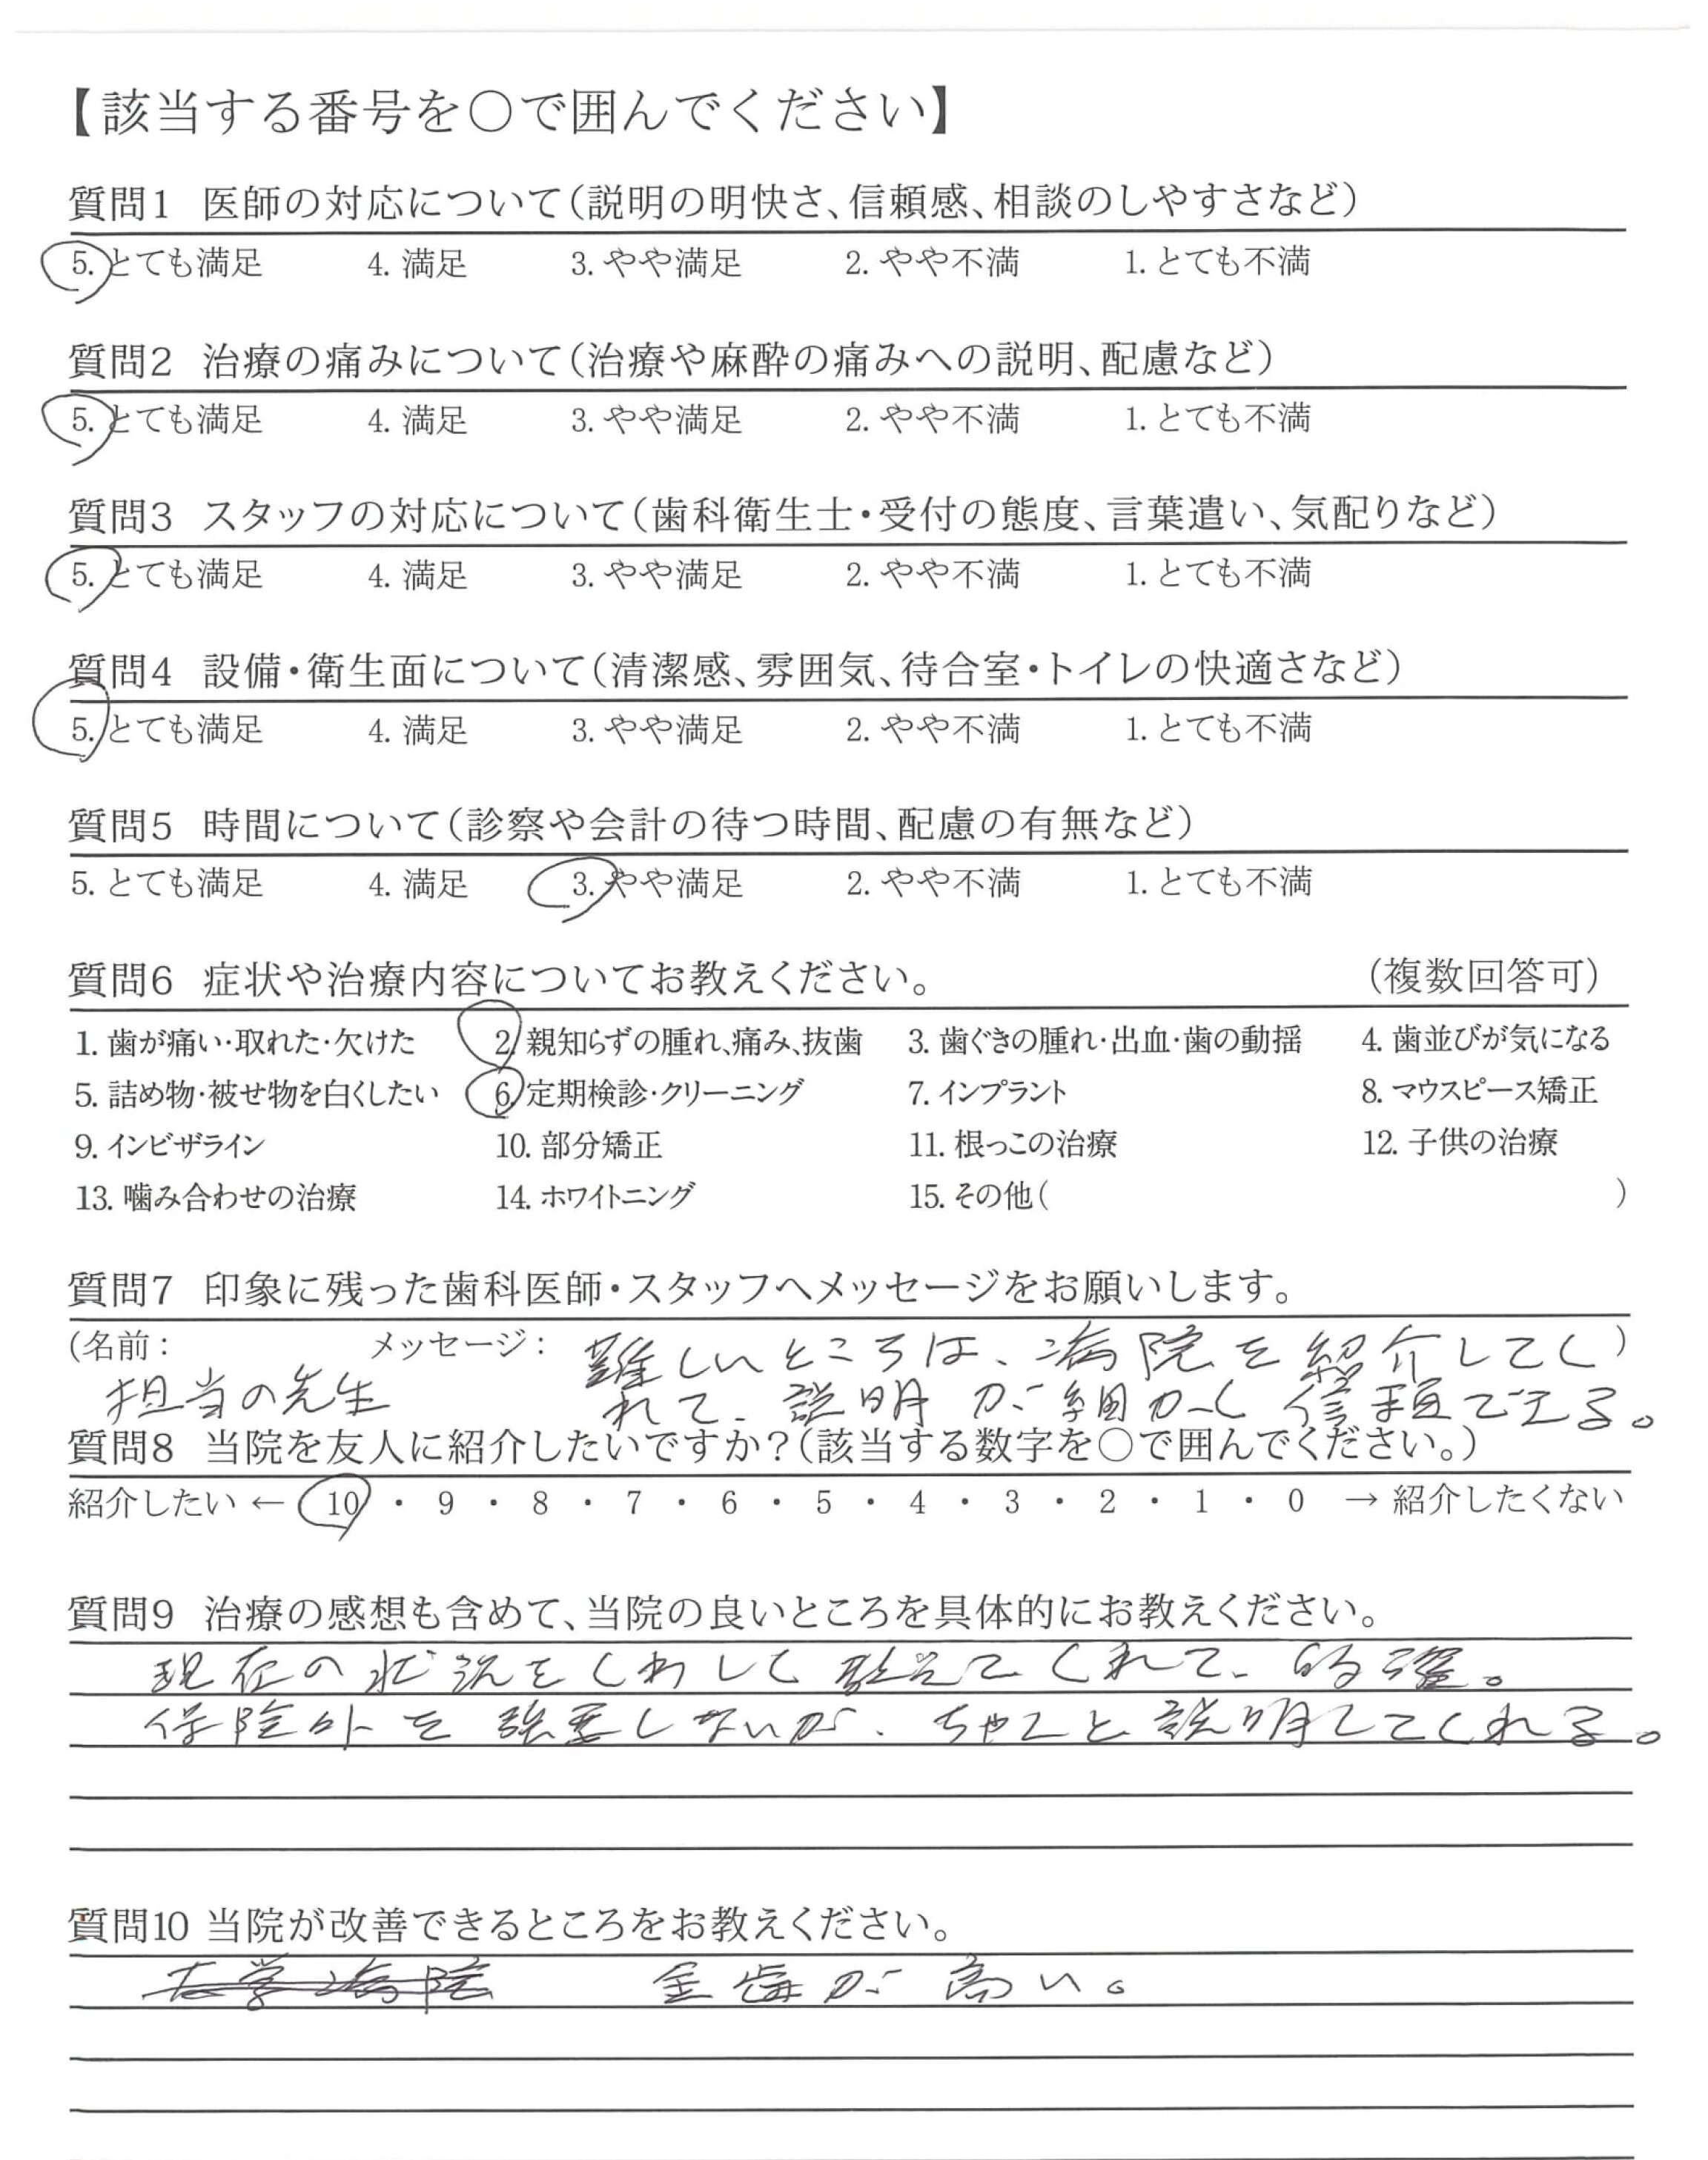 【該当する番号を○で囲んでください】
質問1 医師の対応について(説明の明快さ、信頼感、相談のしやすさなど)
5. とても満足 4. 満足 3. やや満足 2. やや不満 1. とても不満
質問2 治療の痛みについて(治療や麻酔の痛みへの説明、配慮など)
5. とても満足 4. 満足 3. やや満足 2. やや不満 1. とても不満
質問3 スタッフの対応について(歯科衛生士・受付の態度、言葉遣い、気配りなど)
5. とても満足 4. 満足 3. やや満足 2. やや不満 1. とても不満
質問4 設備・衛生面について(清潔感、雰囲気、待合室・トイレの快適さなど)
5. とても満足 4. 満足 3. やや満足 2. やや不満 1. とても不満
質問5 時間について(診察や会計の待つ時間、配慮の有無など)
5. とても満足 4. 満足 3. やや満足 2. やや不満 1. とても不満
質問6 症状や治療内容についてお教えください。 (複数回答可)
1. 歯が痛い・取れた・欠けた 2. 親知らずの腫れ、痛み、抜歯 3. 歯ぐきの腫れ・出血・歯の動揺 4. 歯並びが気になる
5. 詰め物・被せ物を白くしたい 6. 定期検診・クリーニング 7. インプラント 8. マウスピース矯正
9. インビザライン 10. 部分矯正 11. 根っこの治療 12. 子供の治療
13. 噛み合わせの治療 14. ホワイトニング 15. その他( )
質問7 印象に残った歯科医師・スタッフへメッセージをお願いします。
(名前: メッセージ: 難しいところは、病院を紹介してく)
担当の先生 れて、説明が細かく信頼できる。
質問8 当院を友人に紹介したいですか?(該当する数字を○で囲んでください。)
紹介したい ← 10 ・ 9 ・ 8 ・ 7 ・ 6 ・ 5 ・ 4 ・ 3 ・ 2 ・ 1 ・ 0 → 紹介したくない
質問9 治療の感想も含めて、当院の良いところを具体的にお教えください。
現在の状況をくわしく教えてくれて、的確。
保険外を強要しないが、ちゃんと説明してくれる。
質問10 当院が改善できるところをお教えください。
大学病院 金歯が高い。